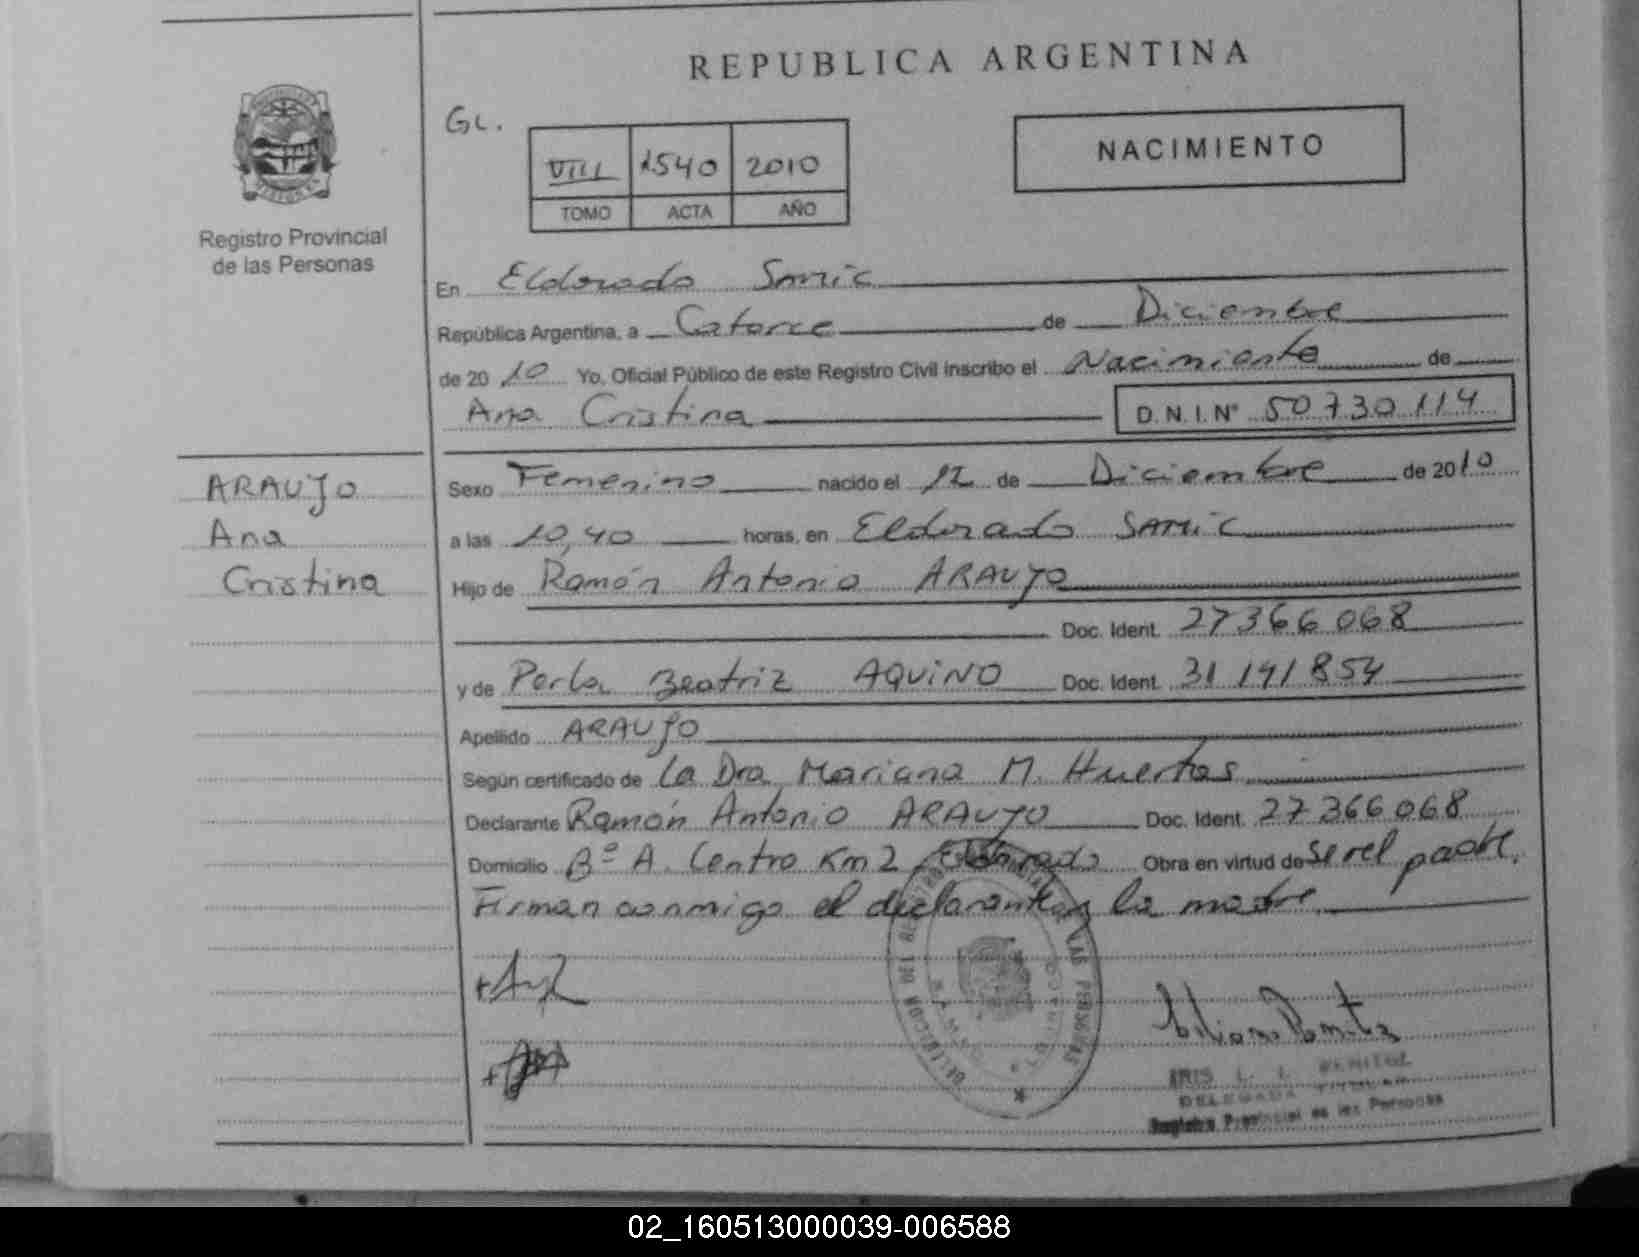 REPUBLICA ARGENTINA
GL.
NACIMIENTO
VIII 1540 2010
TOMO ACTA AÑO
Registro Provincial
de las Personas
En Eldorado Samic
República Argentina, a Catorce de Diciembre
de 2010 Yo, Oficial Público de este Registro Civil inscribo el Nacimiento de
Ana Cristina D.N.I. Nº 50730114
ARAUJO
Ana
Cristina
Sexo Femenino nacido el 12 de Diciembre de 2010
a las 10,40 horas, en Eldorado SAMiC
Hijo de Ramón Antonio ARAUJO
Doc. Ident. 27366068
y de Perla Beatriz AQUINO Doc. Ident. 31 141 854
Apellido ARAUJO
Según certificado de La Dra Mariana M. Huertas
Declarante Ramón Antonio ARAUJO Doc. Ident. 27366068
Domicilio Bº A. Centro Km 2 Eldorado Obra en virtud de Ser el padre.
Firman conmigo el declarante y la madre
DELEGACION DEL REGISTRO PROVINCIAL DE LAS PERSONAS
IRIS L. I. BENITEZ
DELEGADA TITULAR
Registro Provincial de las Personas
02_160513000039-006588